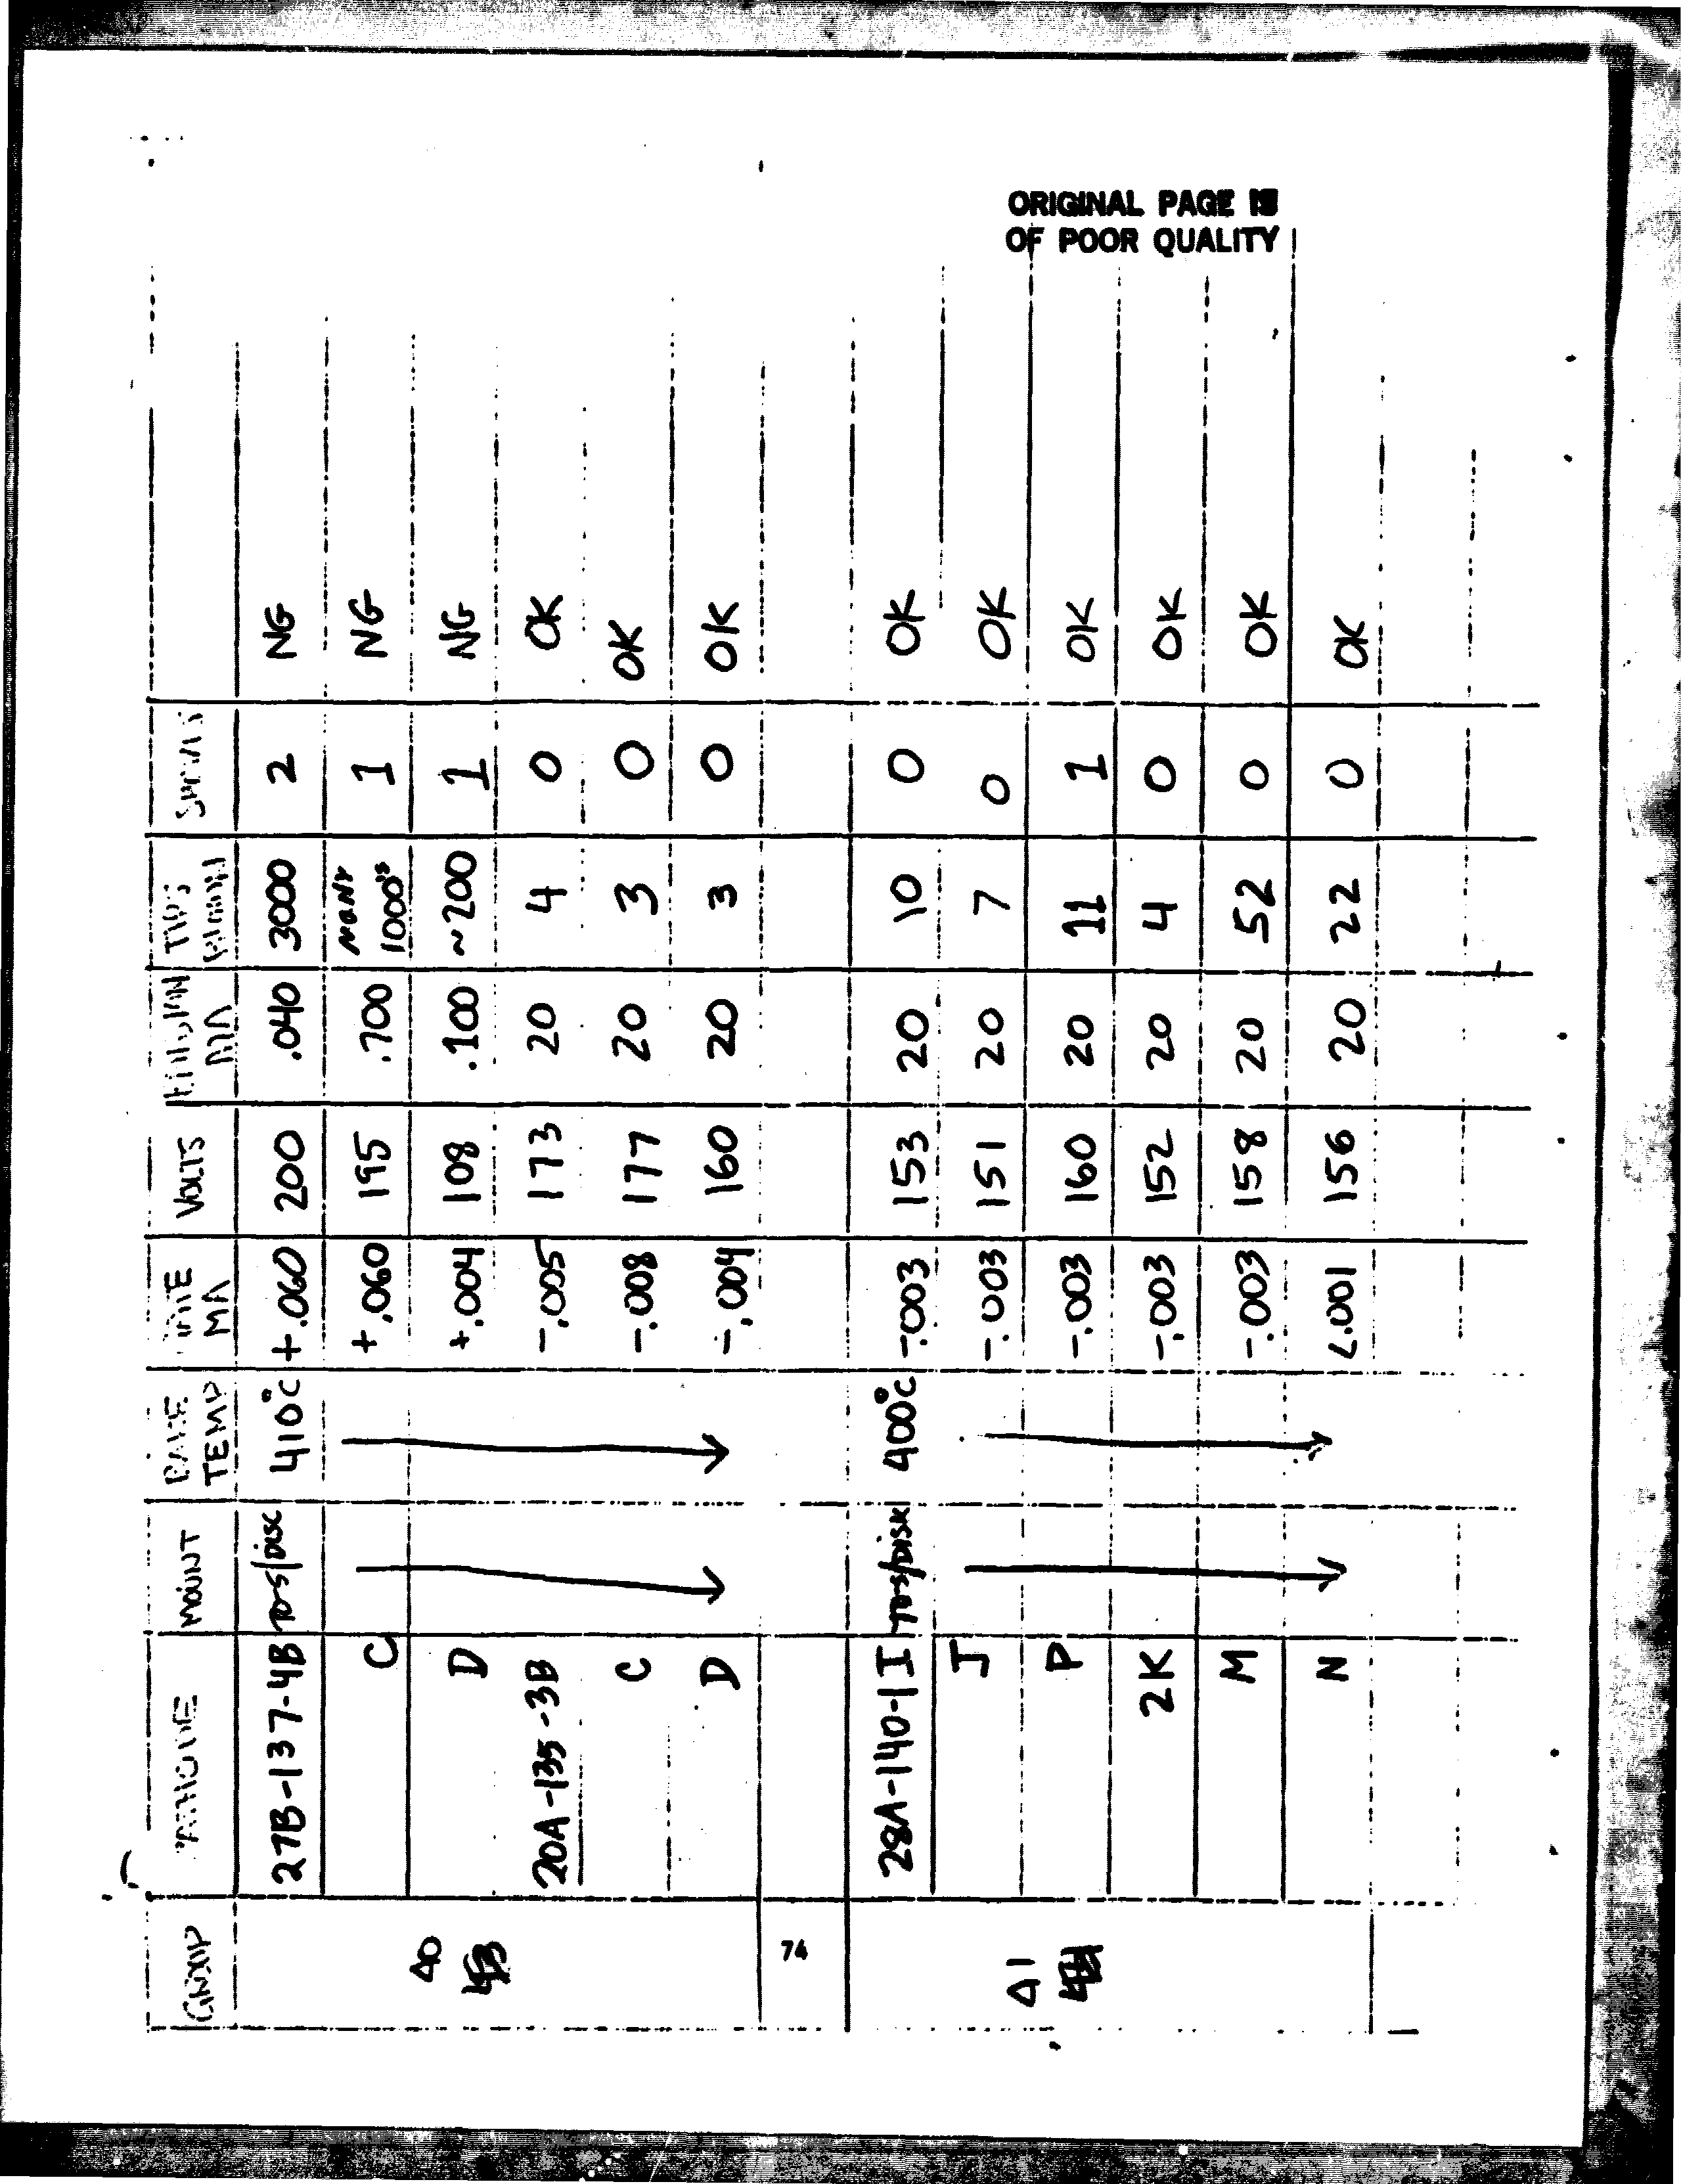 ORIGINAL PAGE IS
OF POOR QUALITY
GROUP MOUNT BAKE TEMP MA VOLTS MA
40 27B-137-4B TO-5/DISC 410°C +.060 200 .040 3000 2 NG
C +.060 195 .700 MANY 1000's 1 NG
D +.004 108 .100 ~200 1 NG
20A-135-3B -.005 173 20 4 0 OK
C -.008 177 20 3 0 OK
D -.004 160 20 3 0 OK
74
41 28A-140-1I TO-5/DISK 400°C -.003 153 20 10 0 OK
J -.003 151 20 7 0 OK
P -.003 160 20 11 1 OK
2K -.003 152 20 4 0 OK
M -.003 158 20 52 0 OK
N <.001 156 20 22 0 OK